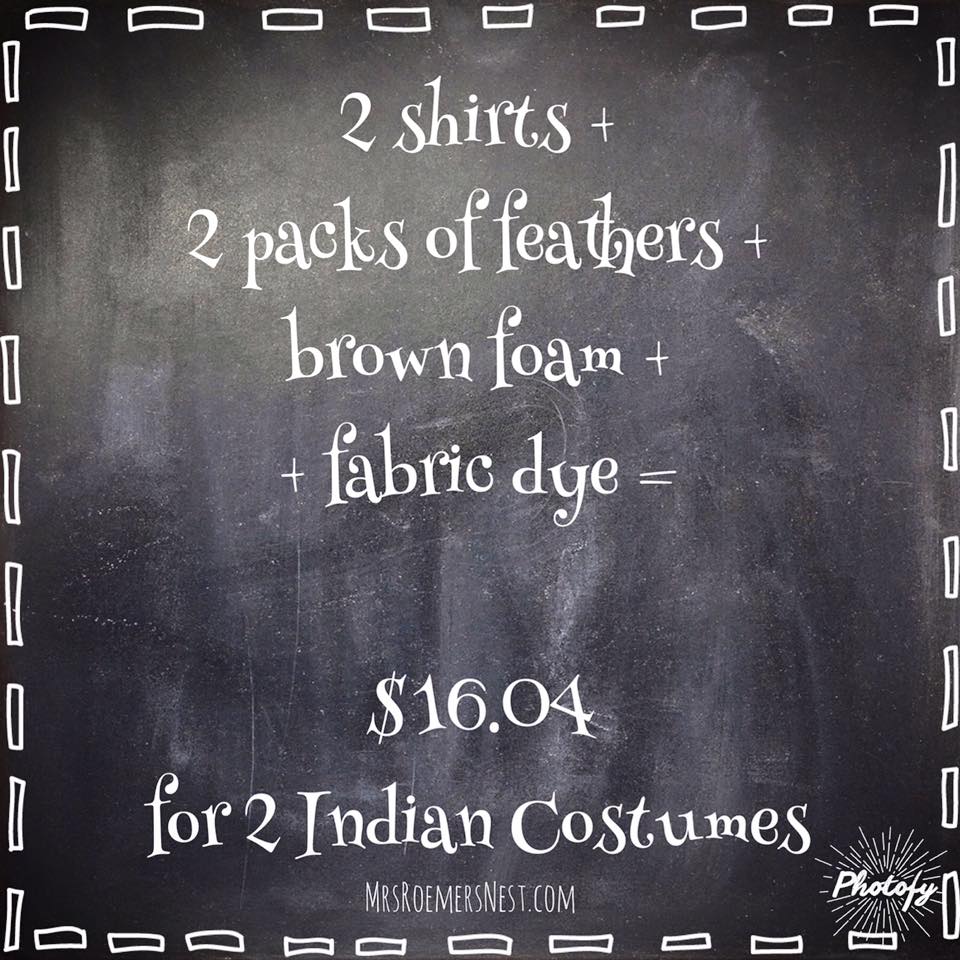 2 shirts +
2 packs of feathers +
brown foam +
+ fabric dye =
$16.04
for 2 Indian Costumes
MRSROEMERSNEST.COM
Photofy